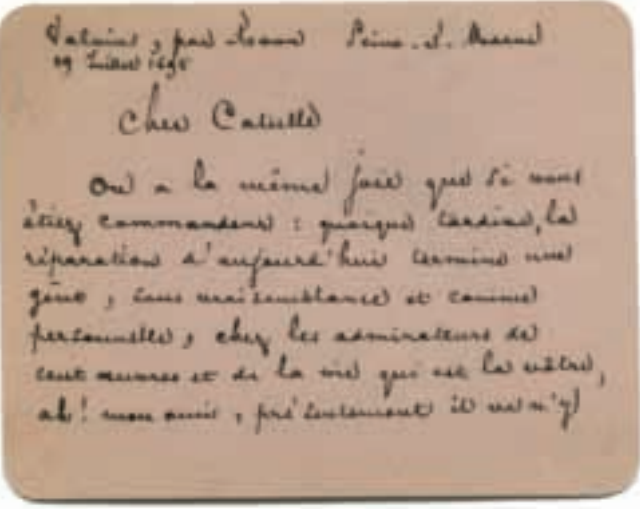 Valvins, par Avon Seine-et-Marne
19 Juillet 1895
Cher Catulle
On a la même joie que si vous
étiez commandeur : quoique tardive, la
réparation d'aujourd'hui termine une
gêne, sans vraisemblance et comme
personnelle, chez les admirateurs de
tout œuvres et de la vie qui est la vôtre,
ah! mon ami, présentement il ne n'y